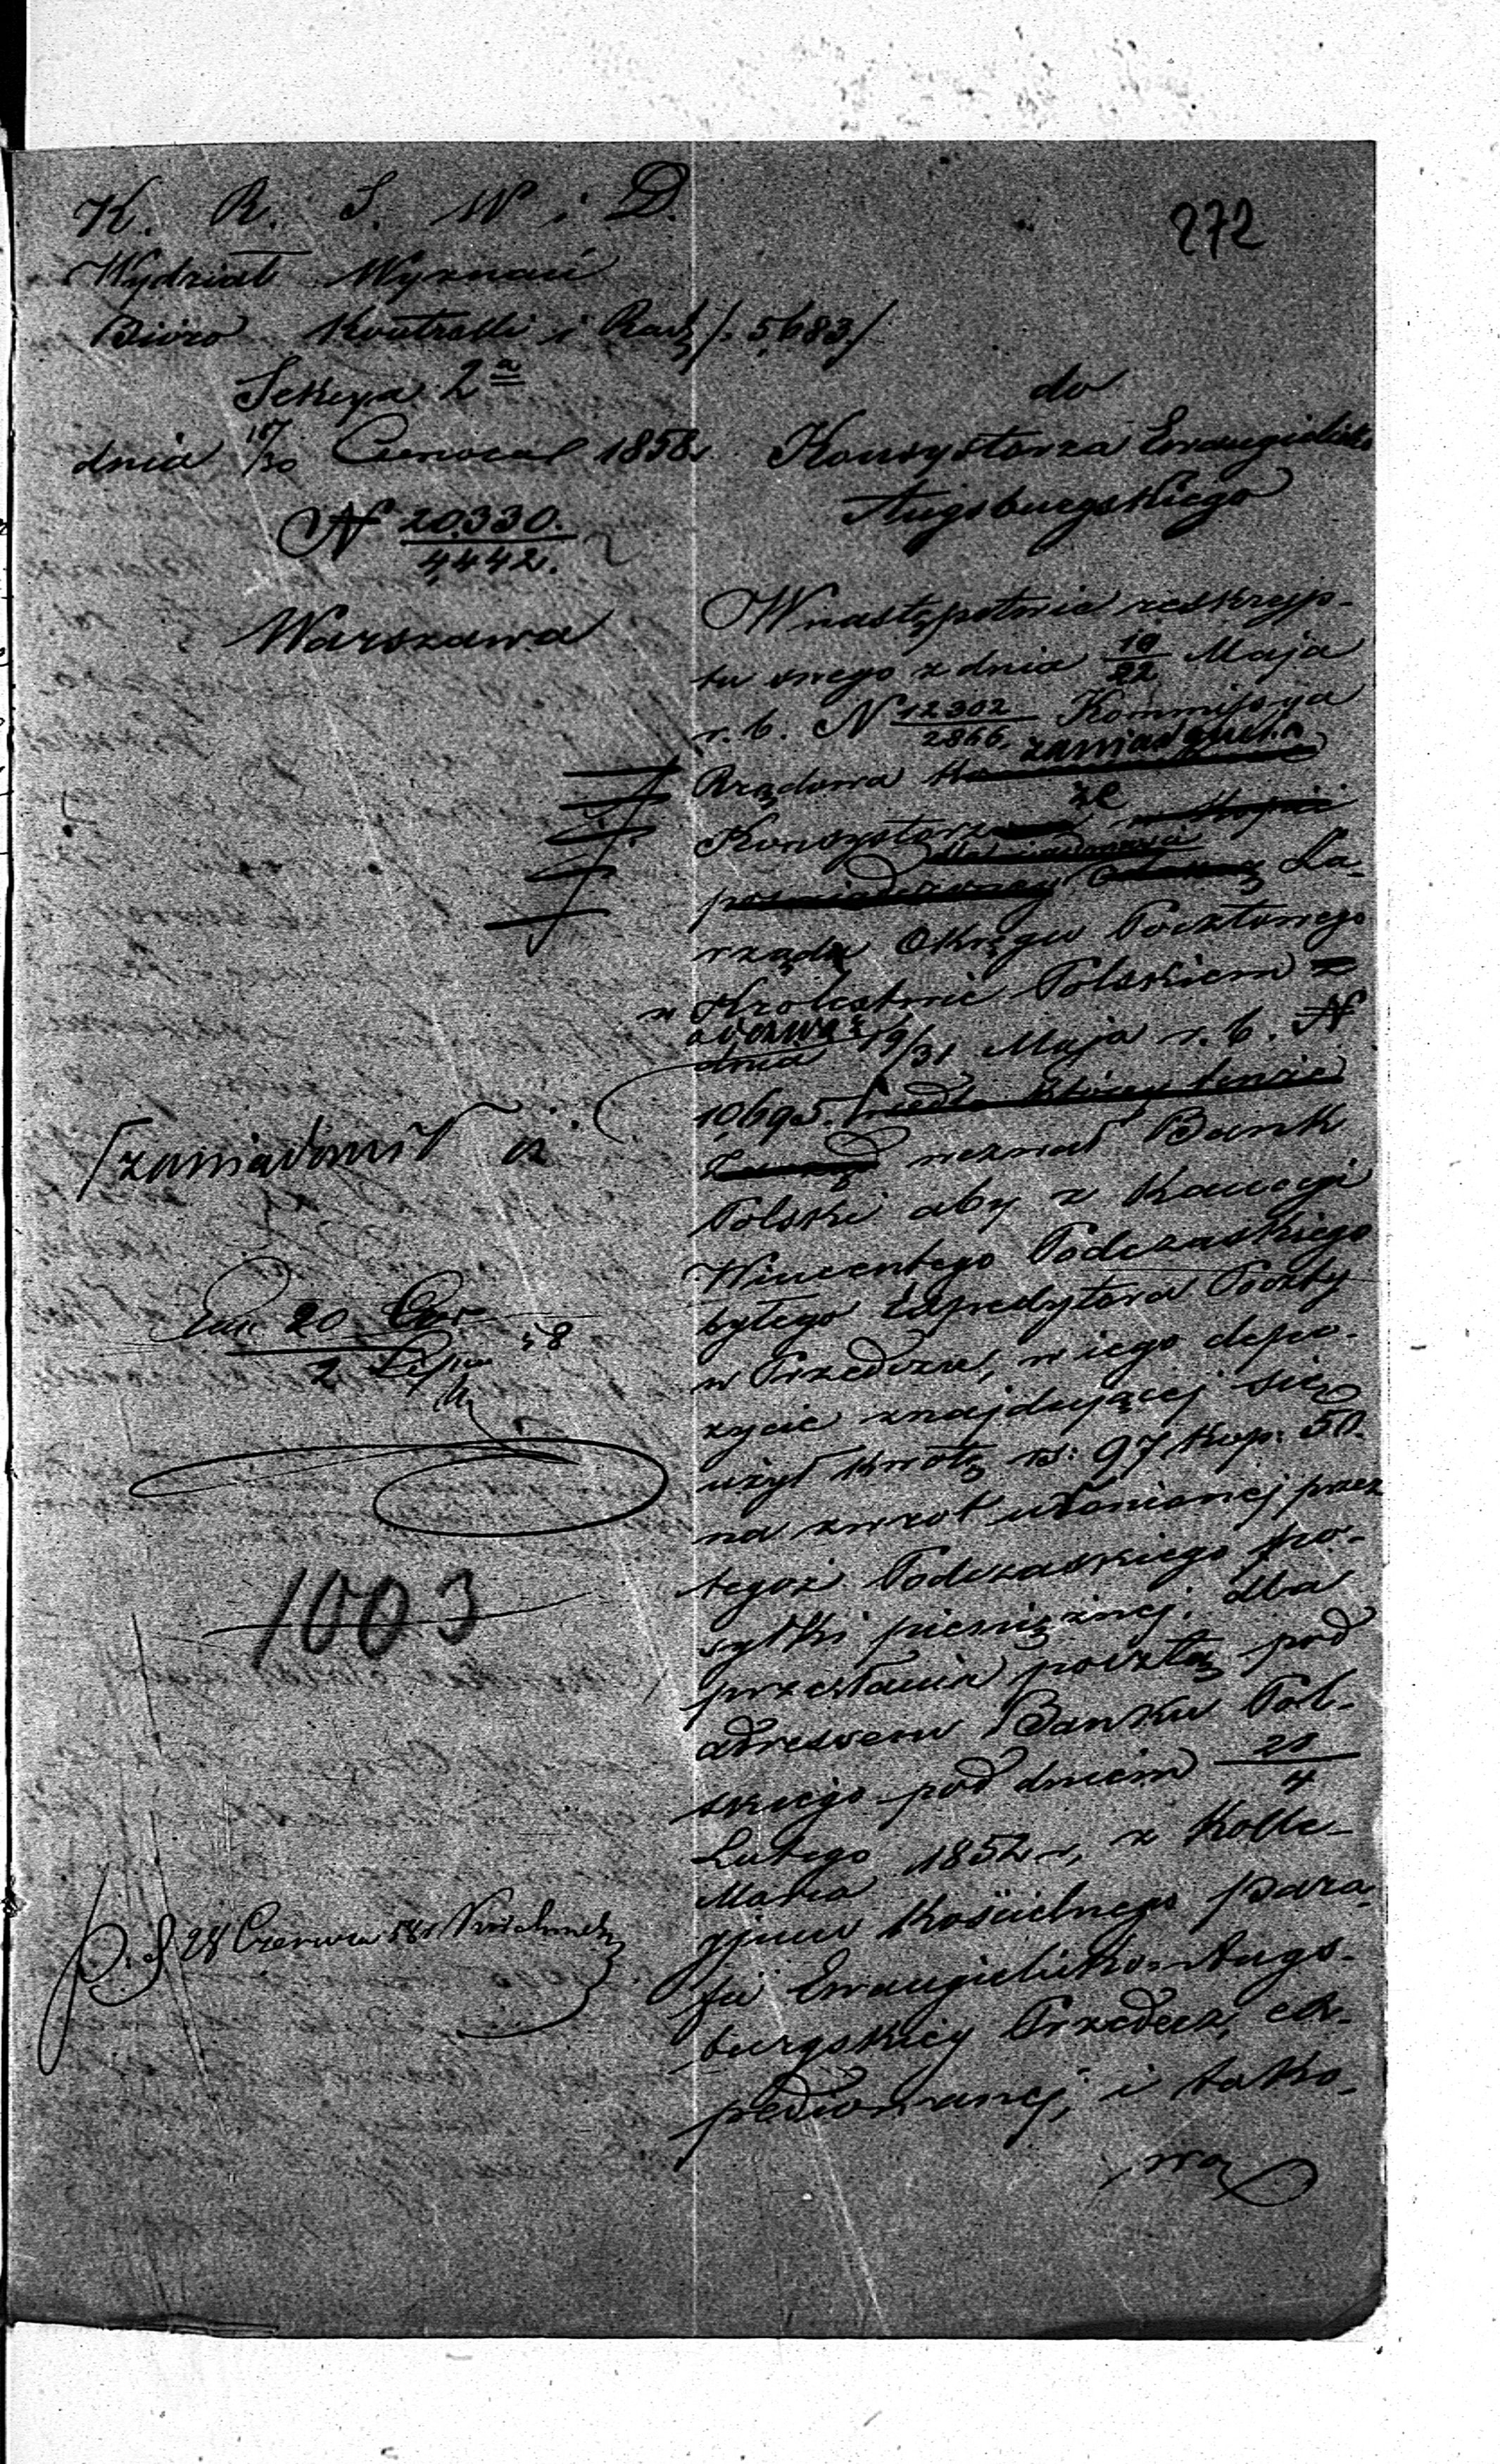 272
K. R. S. W i D.
Wydział Wyznań
Biuro Kontrolli i Rach /. 5683/
Sekcya 2ª
dnia 18/30 Czerwca 1858.
N 20330. / 4442.
Warszawa
do
Konsystorza Ewangelicko
Augsburgskiego
W następstwie reskryp-
tu swego z dnia 10/22 Maja
r. b. N 12302/2866. Kommissya
Rządowa zawiadamia
Konsystorz że
Za-
rząd Okręgu Pocztowego
w Krolestwie Polskiem z
odezwą
dnia 19/31 Maja r. b. N
10695. wedle której tenże
Zarząd wezwał Bank
Polski aby z Kaucyi
Wincentego Podczaskiego
byłego Expedytora Poczty
w Przedczu, w iego depo-
zycie znajdującej się
użył kwotę rs: 97 kop: 50.
na zwrot utonionej przez
tegoż Podczaskiego prze-
syłki pieniężnej, dla
przesłania pocztą pod
adressem Banku Pol-
skiego pod dniem 21/4
Lutego
Marca 1852 r, z Kolle-
gjum Kościelnego para-
fii Ewangielicko-Augs-
burgskiey Przedecz, ex-
pediowanej, i tako-
wą
zawiadomił iż
20 Czer / 2 Lipca 58
1003
28 Czerwca 58